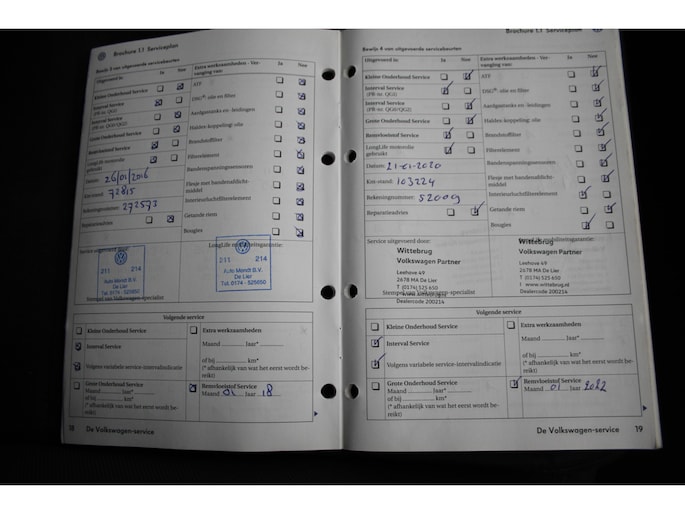 Brochure 1.1 Serviceplan
Bewijs 3 van uitgevoerde servicebeurten
Uitgevoerd is:
Ja
Nee
Extra werkzaamheden - Ver-
vanging van:
Ja
Nee
Kleine Onderhoud Service
Interval Service
(PR-nr. QG1)
Interval Service
Grote Onderhoud Service
Remvloeistof Service
LongLife motorolie
gebruikt
ATF
DSG®: olie en filter
Aardgastanks en -leidingen
Haldex-koppeling: olie
Brandstoffilter
Filterelement
Bandenspanningssensoren
Flesje met bandenafdicht-
middel
Interieurluchtfilterelement
Getande riem
Bougies
Datum: 26/01/2016
Km-stand: 72815
Rekeningnummer: 272573
Reparatieadvies
Service uitgevoerd door:
LongLife mobiliteitsgarantie:
211 214
Auto Mondt B.V.
De Lier
Tel. 0174 - 525650
211 214
Auto Mondt B.V.
De Lier
Tel. 0174 - 525650
Stempel van Volkswagen-specialist
Volgende service
Kleine Onderhoud Service
Interval Service
Volgens variabele service-intervalindicatie
Extra werkzaamheden
Maand ........ Jaar*
of bij ........ km*
(* afhankelijk van wat het eerst wordt be-
reikt)
Grote Onderhoud Service
Maand ........ Jaar*
of bij ........ km*
(* afhankelijk van wat het eerst wordt be-
reikt)
Remvloeistof Service
Maand 01 Jaar 18
18 De Volkswagen-service
Brochure 1.1 Serviceplan
Bewijs 4 van uitgevoerde servicebeurten
Uitgevoerd is:
Ja
Nee
Extra werkzaamheden - Ver-
vanging van:
Ja
Nee
Kleine Onderhoud Service
Interval Service
(PR-nr. QG1)
Interval Service
Grote Onderhoud Service
Remvloeistof Service
LongLife motorolie
gebruikt
ATF
DSG®: olie en filter
Aardgastanks en -leidingen
Haldex-koppeling: olie
Brandstoffilter
Filterelement
Bandenspanningssensoren
Flesje met bandenafdicht-
middel
Interieurluchtfilterelement
Getande riem
Bougies
Datum: 21-01-2020
Km-stand: 103224
Rekeningnummer: 52009
Reparatieadvies
Service uitgevoerd door:
LongLife mobiliteitsgarantie:
Wittebrug
Volkswagen Partner
Leehove 49
2678 MA De Lier
T (0174) 525 650
I www.wittebrug.nl
Dealercode 200214
Wittebrug
Volkswagen Partner
Leehove 49
2678 MA De Lier
T (0174) 525 650
I www.wittebrug.nl
Dealercode 200214
Stempel van Volkswagen-specialist
Volgende service
Kleine Onderhoud Service
Interval Service
Volgens variabele service-intervalindicatie
Extra werkzaamheden
Maand ........ Jaar*
of bij ........ km*
(* afhankelijk van wat het eerst wordt be-
reikt)
Grote Onderhoud Service
Maand ........ Jaar*
of bij ........ km*
(* afhankelijk van wat het eerst wordt be-
reikt)
Remvloeistof Service
Maand 01 Jaar 2022
De Volkswagen-service 19